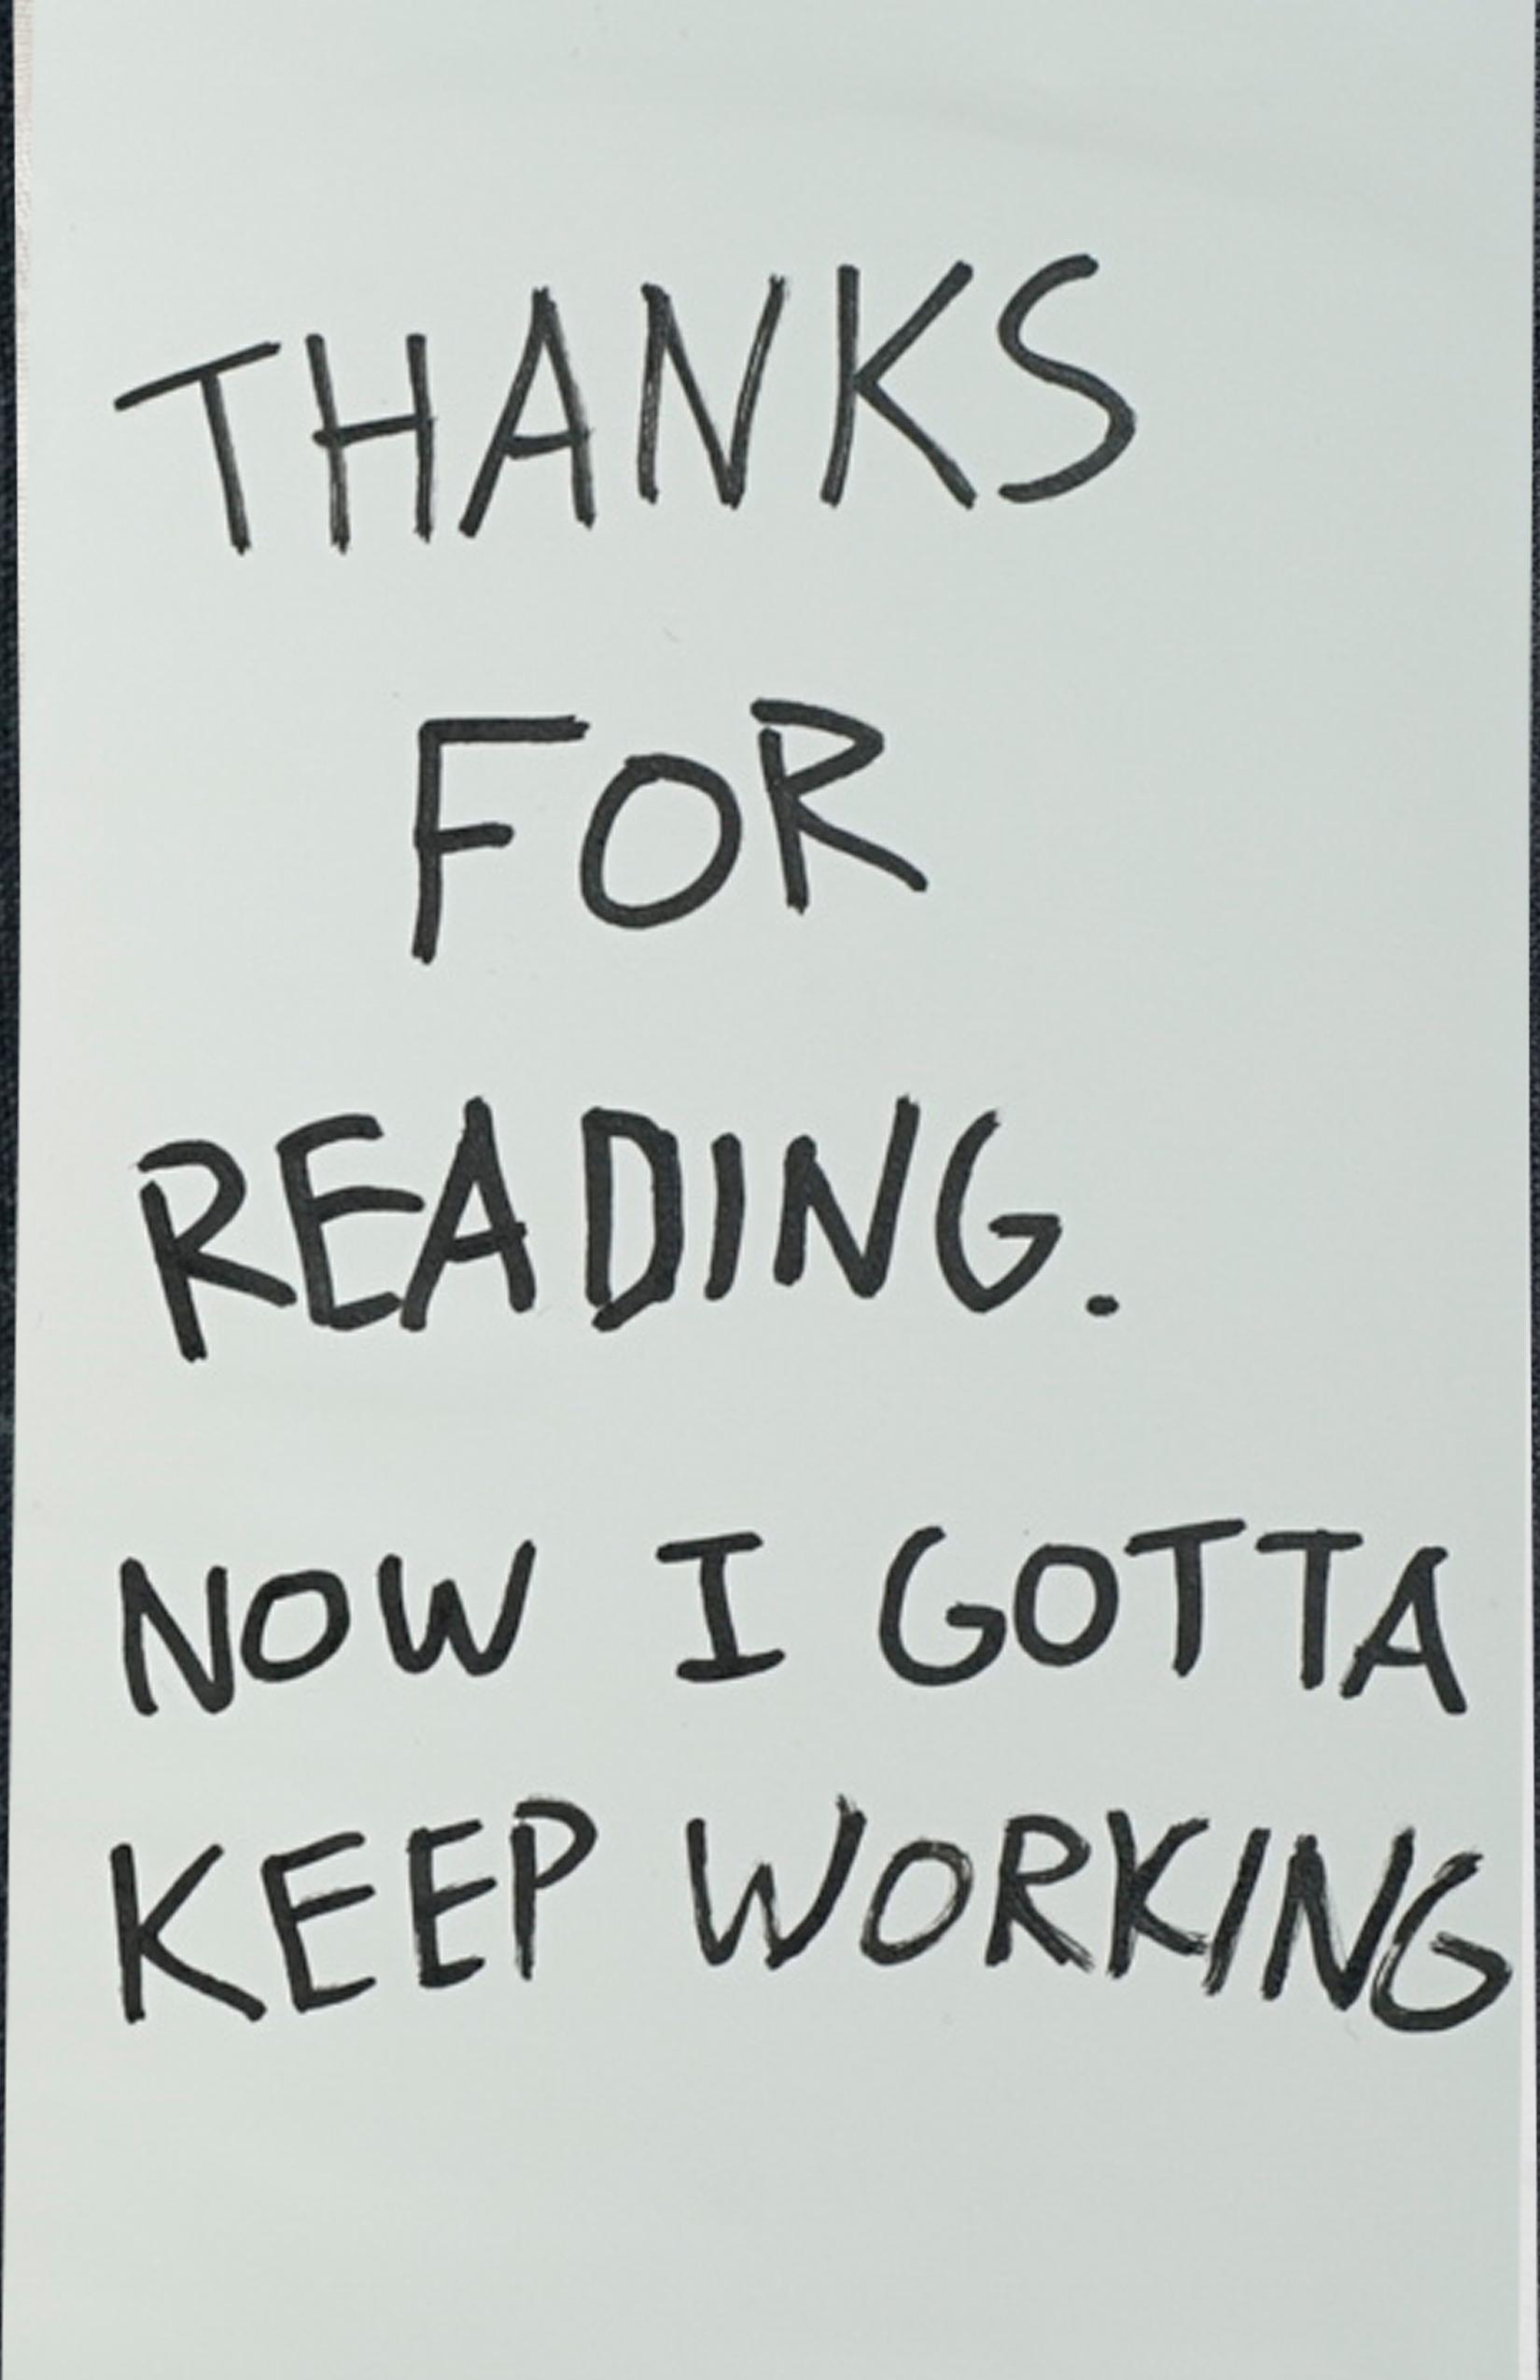 THANKS
FOR
READING.
NOW I GOTTA
KEEP WORKING